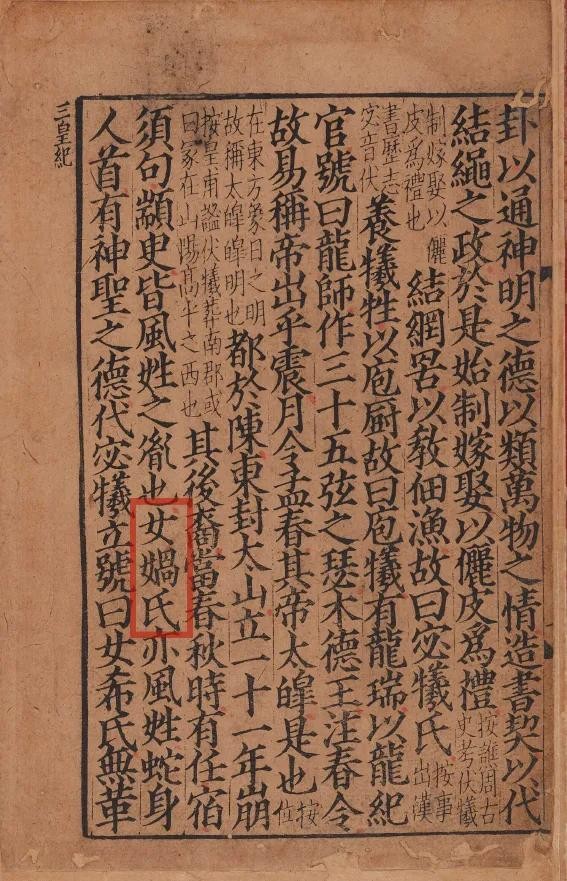 卦以通神明之德以類萬物之情造書契以代
結繩之政於是始制嫁娶以儷皮爲禮按譙周古史考伏犧
制嫁娶以儷皮爲禮也結網罟以教佃漁故曰宓犧氏按事出漢
書歷志宓音伏養犧牲以庖厨故曰庖犧有龍瑞以龍紀
官號曰龍師作三十五弦之瑟木德王注春令
故易稱帝出乎震月令孟春其帝太皡是也按位
在東方象日之明故稱太皡皡明也都於陳東封太山立一十一年崩
按皇甫謐伏犧葬南郡或曰冢在山陽高平之西也其後裔當春秋時有任宿
須句顓臾皆風姓之胤也女媧氏亦風姓蛇身
人首有神聖之德代宓犧立號曰女希氏無革
三皇紀